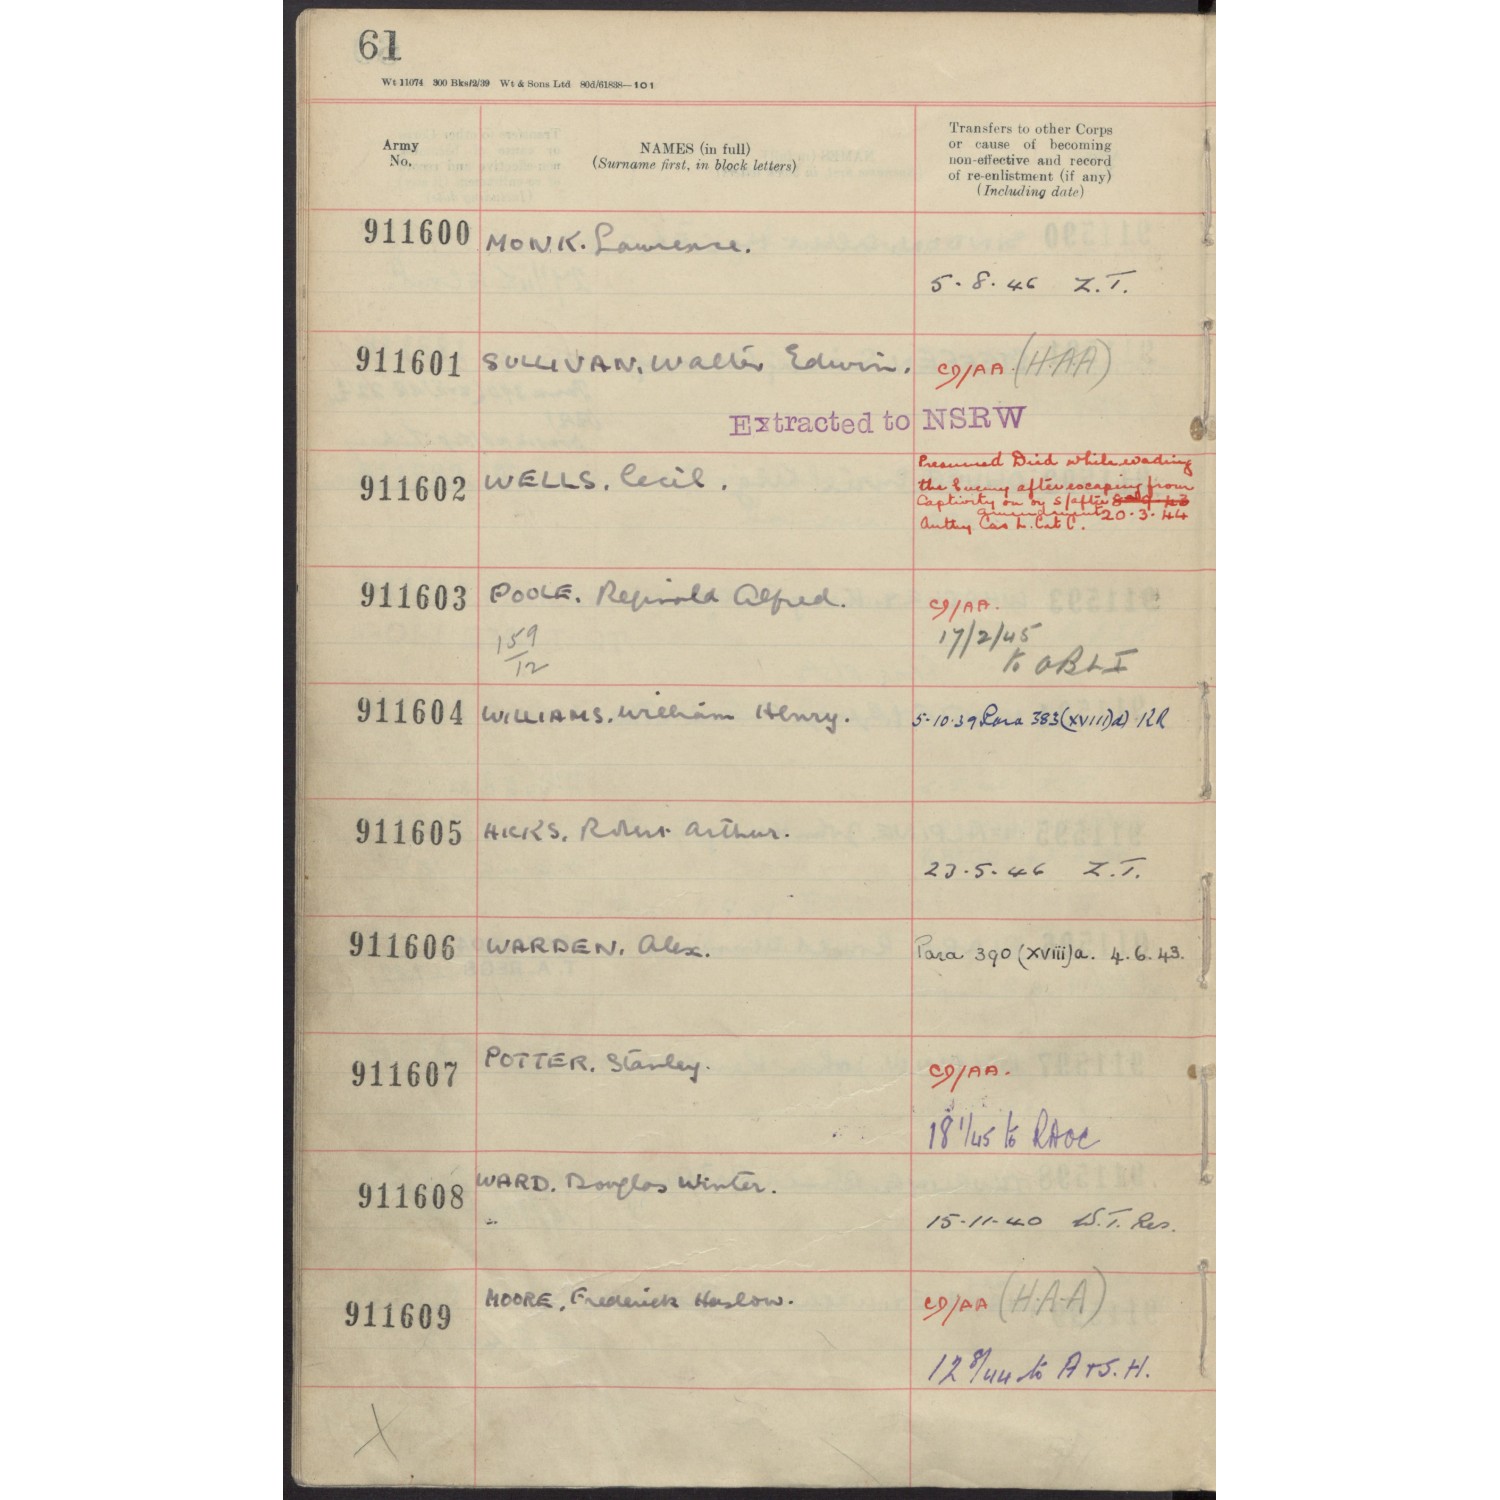 61
Wt 11074 300 Bks/2/39 Wt & Sons Ltd 80d/61838—101
Army
No.
NAMES (in full)
(Surname first, in block letters)
Transfers to other Corps
or cause of becoming
non-effective and record
of re-enlistment (if any)
(Including date)
911600 MONK. Lawrence.
5.8.46 Z.T.
911601 SULLIVAN. Walter Edwin. CD/AA. (H.A.A)
Extracted to NSRW
911602 WELLS. Cecil.
Presumed Died while evading
the Enemy after escaping from
Captivity on or s/after
amendment 20.3.44
Authy Cas L. Cat C.
911603 POOLE. Reginald Alfred. CD/AA.
159
12
17/2/45
to OBLI
911604 WILLIAMS. William Henry. 5.10.39 Para 383(XVIII)d) KR
911605 HICKS. Robert Arthur.
23.5.46 Z.T.
911606 WARDEN. Alex. Para 390 (xviii)a. 4.6.43.
911607 POTTER. Stanley. CD/AA.
18 1/45 to RAOC
911608 WARD. Douglas Winter.
15-11-40 W.T. Res.
911609 MOORE. Frederick Haslow. CD/AA (H.A.A)
12 8/44 to A+S.H.
X